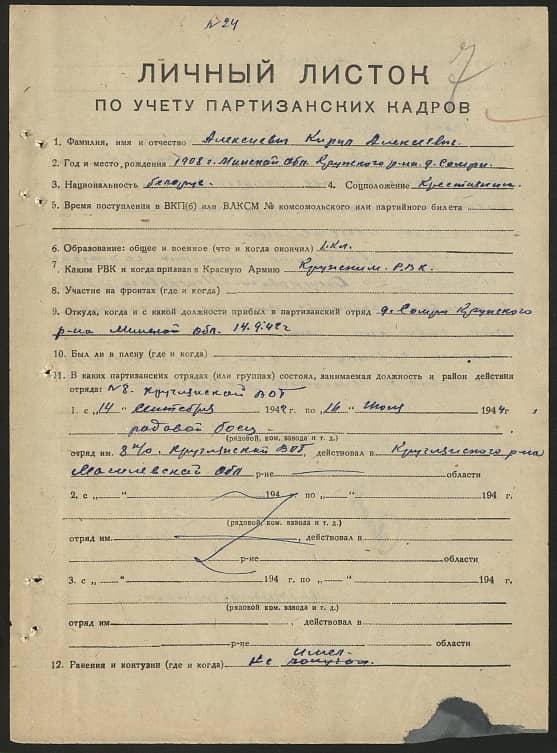 № 24
7
ЛИЧНЫЙ ЛИСТОК
ПО УЧЕТУ ПАРТИЗАНСКИХ КАДРОВ
1. Фамилия, имя и отчество Алексиевич Кирил Алексеевич.
2. Год и место рождения 1908 г. Минской Обл. Крупского р-на д. 
3. Национальность белорус. 4. Соцположение Крестьянин.
5. Время поступления в ВКП(б) или ВЛКСМ № комсомольского или партийного билета
6. Образование: общее и военное (что и когда окончил) кл.
7. Каким РВК и когда призван в Красную Армию Крупским. Р.В.К.
8. Участие на фронтах (где и когда)
9. Откуда, когда и с какой должности прибыл в партизанский отряд д. Крупского
р-на Минской Обл. 14.9.42 г
10. Был ли в плену (где и когда)
11. В каких партизанских отрядах (или группах) состоял, занимаемая должность и район действия
отряда: № 8. Круглянской ВОГ
1. с „ 14 “ Сентября 1942 г. по „ 16 “ Июля 1944 г,
рядовой боец
(рядовой, ком. взвода и т. д.)
отряд им. 8 п/о. Круглянской ВОГ, действовал в Круглянского р-на
Могилевской Обл р-не области
2. с „ “ 194 по „ “ 194 г.
(рядовой, ком. взвода и т. д.)
отряд им. , действовал в
р-не области
3. с „ “ 194 г. по „ “ 194 г.
(рядовой, ком. взвода и т. д.)
отряд им. , действовал в
р-не области
12. Ранения и контузии (где и когда) не имел.